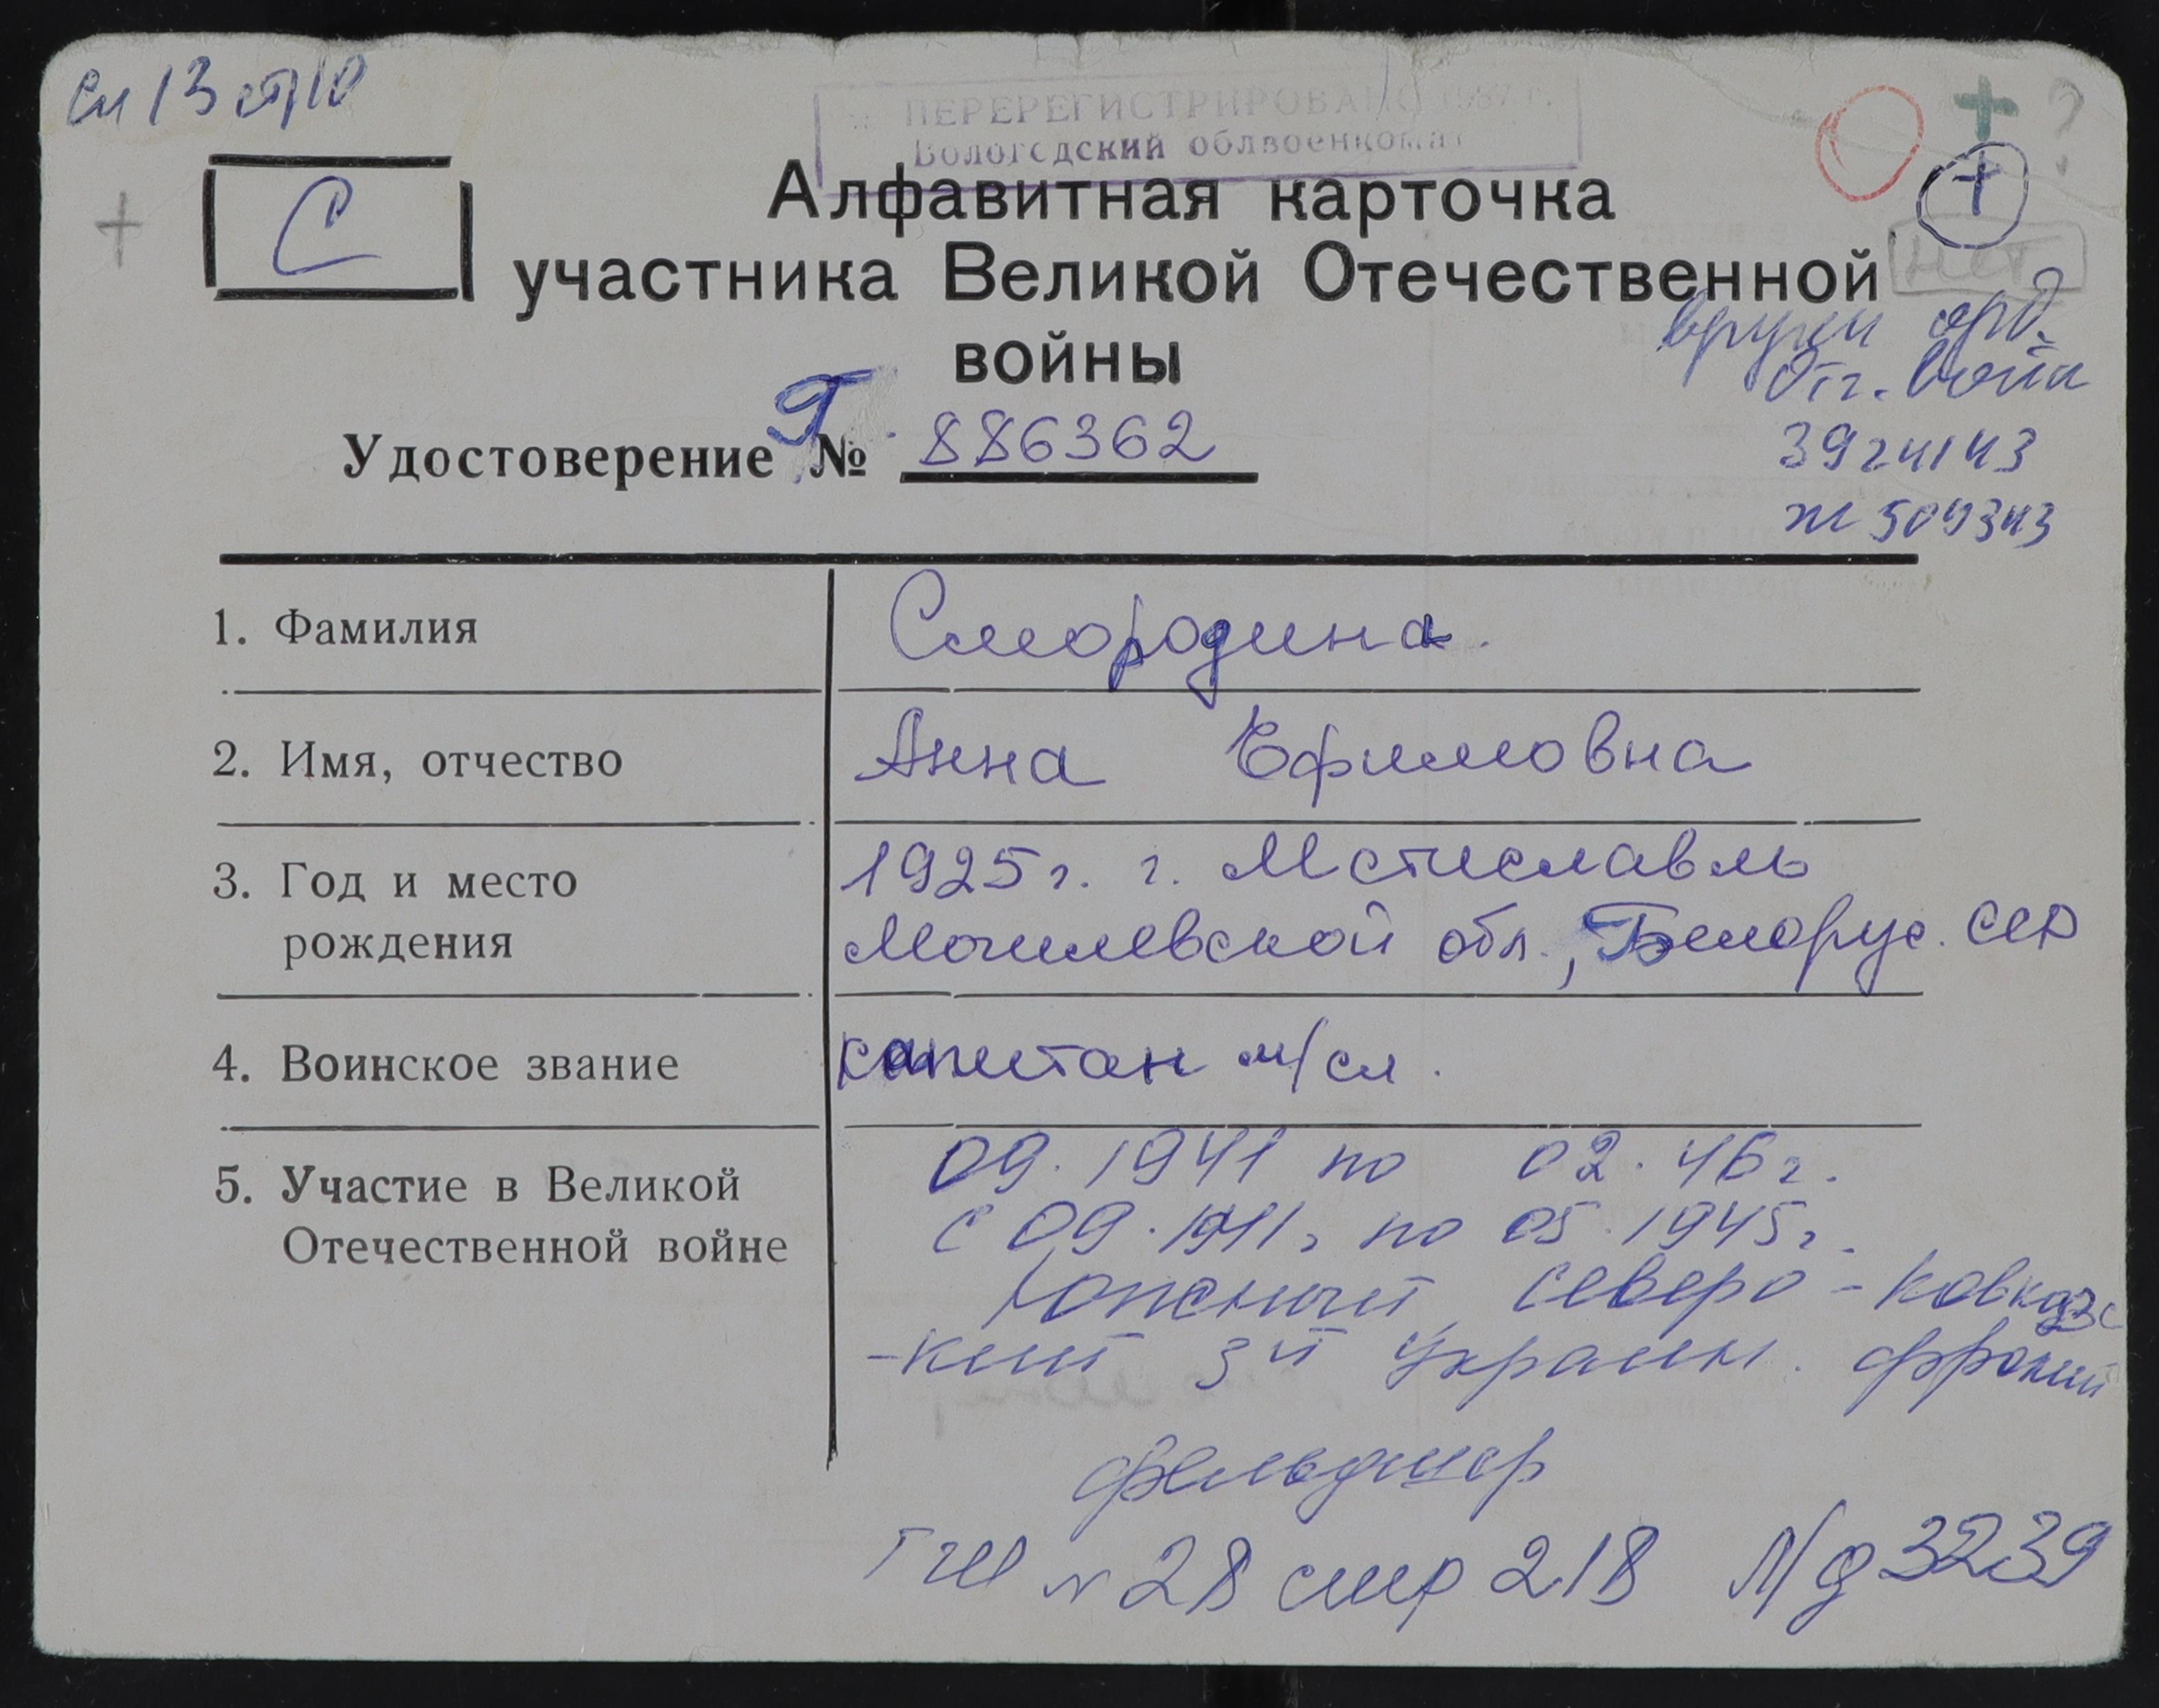 См 13 стр 10
ПЕРЕРЕГИСТРИРОВАНО 1987 г.
Вологодский облвоенкомат
С
Алфавитная карточка
участника Великой Отечественной
войны
нет
вручен орд.
От. Войн
3924143
Удостоверение Г № 886362
М 509343
1. Фамилия Смородина.
2. Имя, отчество Анна Ефимовна
3. Год и место 1925 г. г. Мстиславль
рождения Могилевской обл., Белорус. ССР
4. Воинское звание капитан м/сл.
5. Участие в Великой 09.1941 по 02.46 г.
Отечественной войне с 09.1941 г по 05.1945 г.
Южный, Северо-Кавказс
-кий 3й Украин. фронт
фельдшер
№ 28 стр 218 № д 3239